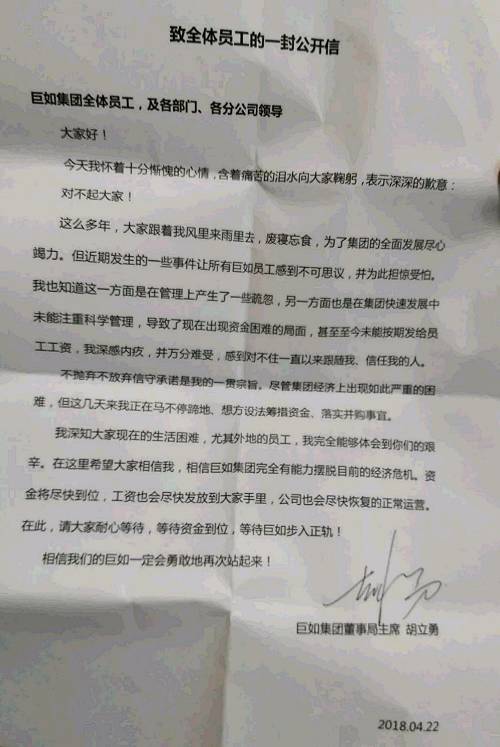 致全体员工的一封公开信
巨如集团全体员工，及各部门、各分公司领导
大家好！
今天我怀着十分惭愧的心情，含着痛苦的泪水向大家鞠躬，表示深深的歉意：
对不起大家！
这么多年，大家跟着我风里来雨里去，废寝忘食，为了集团的全面发展尽心
竭力。但近期发生的一些事件让所有巨如员工感到不可思议，并为此担惊受怕。
我也知道这一方面是在管理上产生了一些疏忽，另一方面也是在集团快速发展中
未能注重科学管理，导致了现在出现资金困难的局面，甚至至今未能按期发给员
工工资，我深感内疚，并万分难受，感到对不住一直以来跟随我、信任我的人。
不抛弃不放弃信守承诺是我的一贯宗旨。尽管集团经济上出现如此严重的困
难，但这几天来我正在马不停蹄地、想方设法筹措资金、落实并购事宜。
我深知大家现在的生活困难，尤其外地的员工，我完全能够体会到你们的艰
辛。在这里希望大家相信我，相信巨如集团完全有能力摆脱目前的经济危机。资
金将尽快到位，工资也会尽快发放到大家手里，公司也会尽快恢复的正常运营。
在此，请大家耐心等待，等待资金到位，等待巨如步入正轨！
相信我们的巨如一定会勇敢地再次站起来！
巨如集团董事局主席 胡立勇
2018.04.22